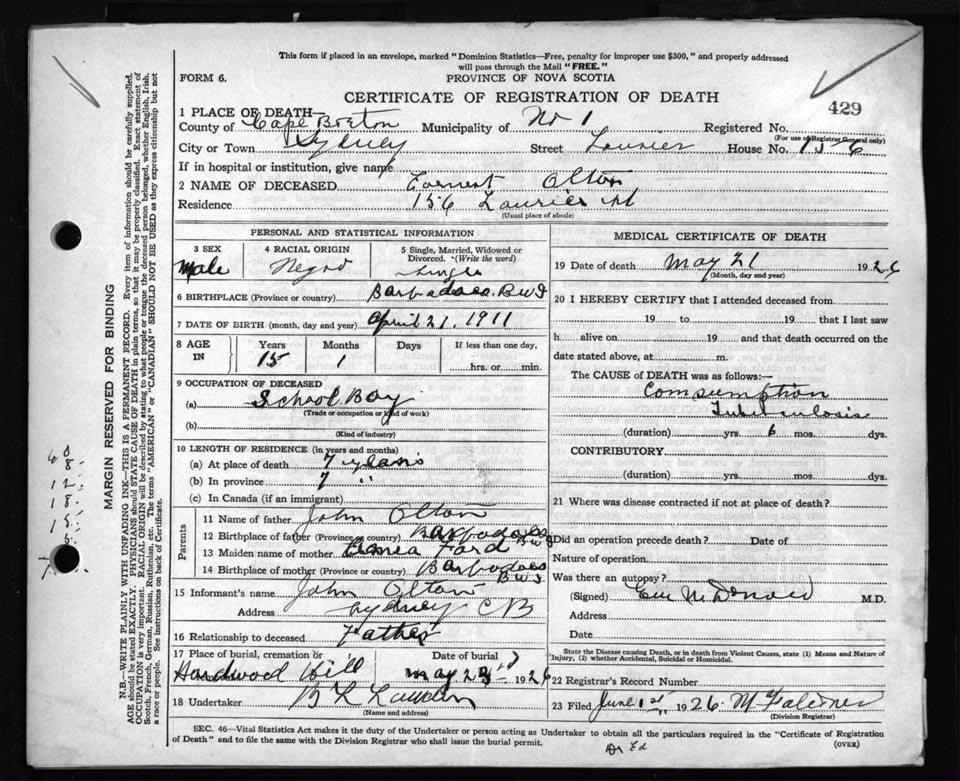 This form if placed in an envelope, marked "Dominion Statistics—Free, penalty for improper use $300," and properly addressed
will pass through the Mail "FREE."
FORM 6.
PROVINCE OF NOVA SCOTIA
CERTIFICATE OF REGISTRATION OF DEATH
429
1 PLACE OF DEATH—
County of Cape Breton Municipality of No 1 Registered No.
(For use of Registrar General only)
City or Town Sydney Street Laurier House No. 156
If in hospital or institution, give name
2 NAME OF DECEASED Earnest Olton
Residence 156 Laurier St
(Usual place of abode)
PERSONAL AND STATISTICAL INFORMATION
3 SEX 4 RACIAL ORIGIN 5 Single, Married, Widowed or
Divorced. (Write the word)
Male Negro Single
6 BIRTHPLACE (Province or country) Barbadoes. B W I
7 DATE OF BIRTH (month, day and year) April 21. 1911
8 AGE IN Years Months Days If less than one day,
15 1 hrs. or min.
9 OCCUPATION OF DECEASED
(a) School Boy
(Trade or occupation or kind of work)
(b)
(Kind of industry)
10 LENGTH OF RESIDENCE (in years and months)
(a) At place of death 7 years
(b) In province 7 "
(c) In Canada (if an immigrant)
Parents
11 Name of father John Olton
12 Birthplace of father (Province or country) Barbadoes B W I
13 Maiden name of mother Ford
14 Birthplace of mother (Province or country) Barbadoes
B W I
15 Informant's name John Olton
Address Sydney C B
16 Relationship to deceased Father
17 Place of burial, cremation or Date of burial
Hardwood Hill May 1926
18 Undertaker
(Name and address)
MEDICAL CERTIFICATE OF DEATH
19 Date of death May 21 1926
(Month, day and year)
20 I HEREBY CERTIFY that I attended deceased from
19 to 19 that I last saw
h alive on 19 and that death occurred on the
date stated above, at m.
The CAUSE of DEATH was as follows:—
Comsumption
Tuberculosis
(duration) yrs. 6 mos. dys.
CONTRIBUTORY
(duration) yrs. mos. dys.
21 Where was disease contracted if not at place of death?
Did an operation precede death? Date of
Nature of operation
Was there an autopsy?
(Signed) McDonald M.D.
Address
Date
State the Disease causing Death, or in death from Violent Causes, state (1) Means and Nature of
Injury, (2) whether Accidental, Suicidal or Homicidal.
22 Registrar's Record Number
23 Filed June 1st 1926. M Falconer
(Division Registrar)
SEC. 46—Vital Statistics Act makes it the duty of the Undertaker or person acting as Undertaker to obtain all the particulars required in the "Certificate of Registration
of Death" and to file the same with the Division Registrar who shall issue the burial permit.
(OVER)
MARGIN RESERVED FOR BINDING
N.B.—WRITE PLAINLY WITH UNFADING INK—THIS IS A PERMANENT RECORD. Every item of information should be carefully supplied.
AGE should be stated EXACTLY. PHYSICIANS should STATE CAUSE OF DEATH in plain terms, so that it may be properly classified. Exact statement of
OCCUPATION is very important. RACIAL ORIGIN will be described by stating to what people or tongue the deceased person belonged, whether English, Irish,
Scotch, French, German, Russian, Ruthenian, etc. The terms "AMERICAN" or "CANADIAN" SHOULD NOT BE USED as they express citizenship but not
a race or people. See instructions on back of Certificate.